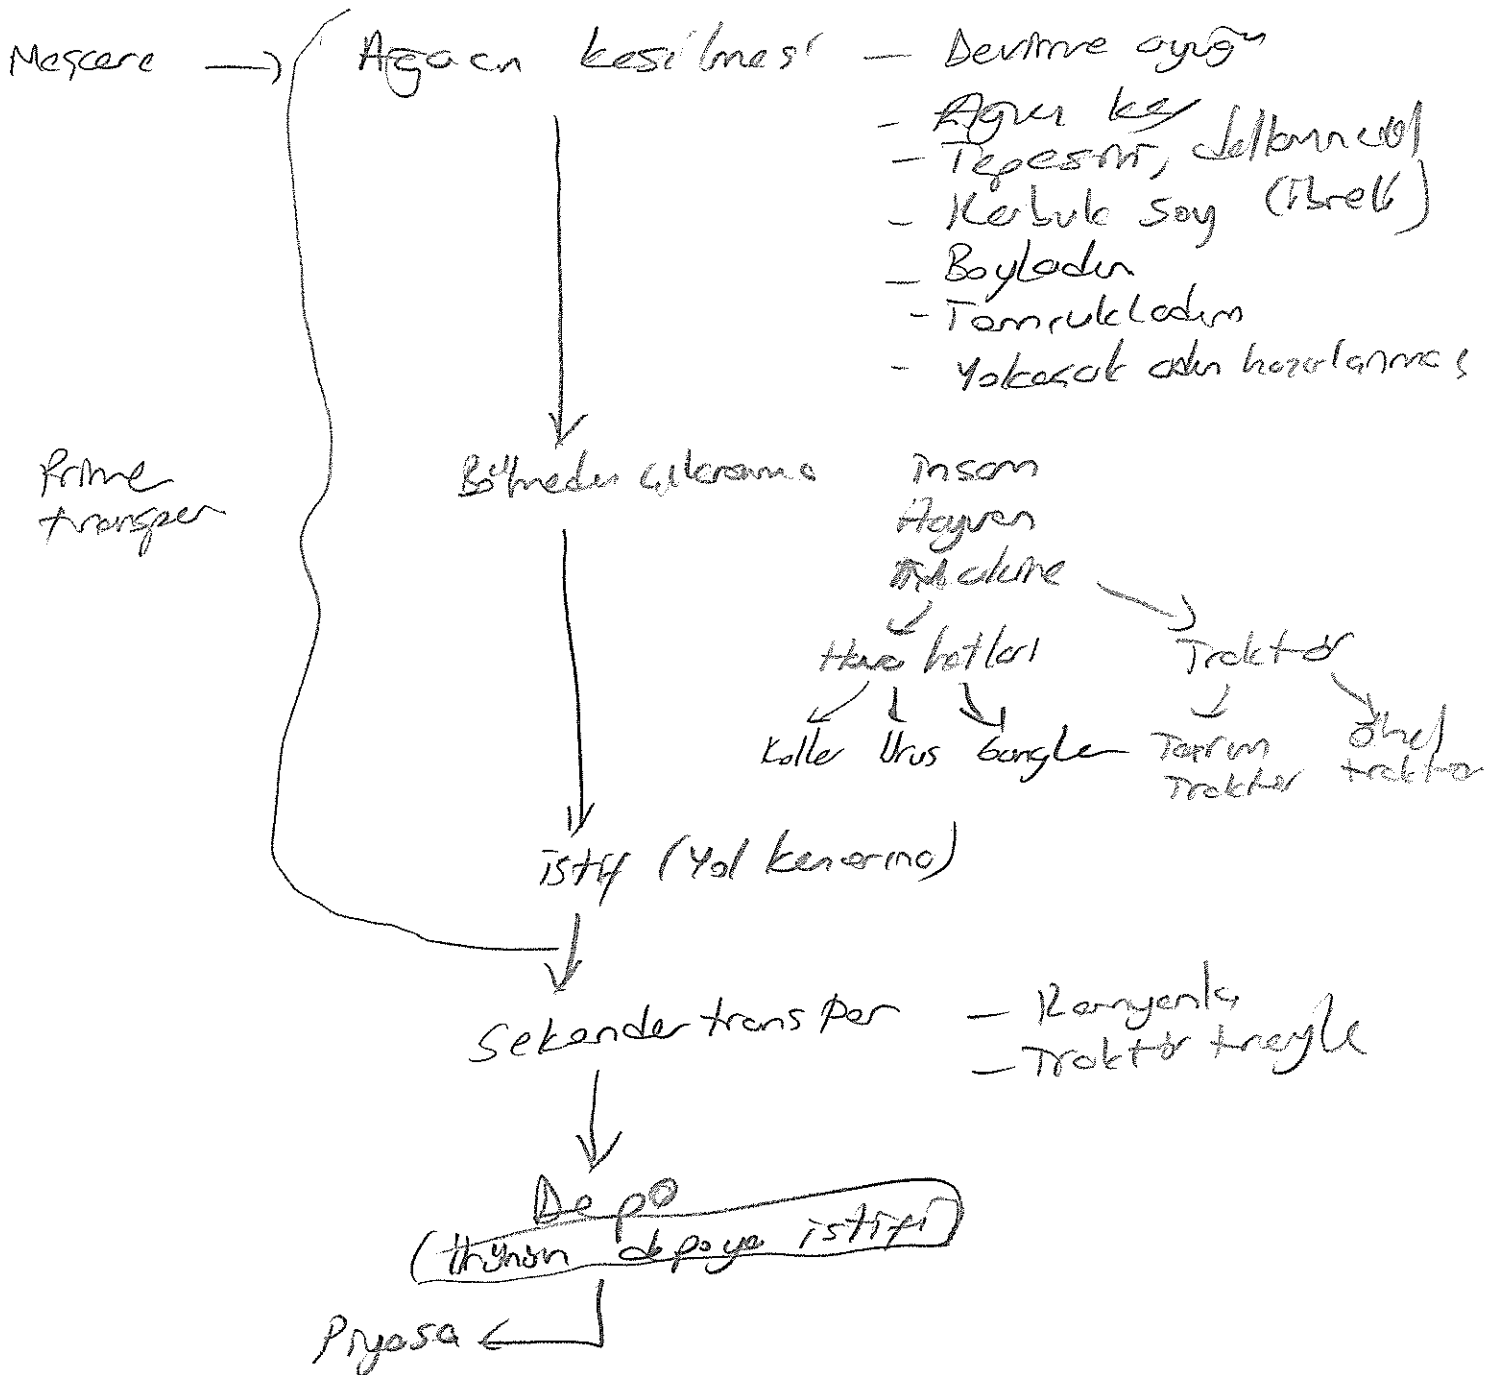 Meşcere → Ağacın kesilmesi — Devirme
- Ağacı kes
- Tepesini,
- Kabuk soy (İbreli)
- Boyladın
- Tomrukladın
- Yakacak odun hazırlanması
Primer transper
Bölmeden çıkarama
insan
Hayvan
Makine
Hava hatları
Traktör
Koller Urus Gangle
Tarım Traktör
Özel traktör
istif (Yol kenarına)
Sekonder transper
- Kamyonla
- Traktör treyle
Depo
(Ürünün depoya istifi)
Piyasa